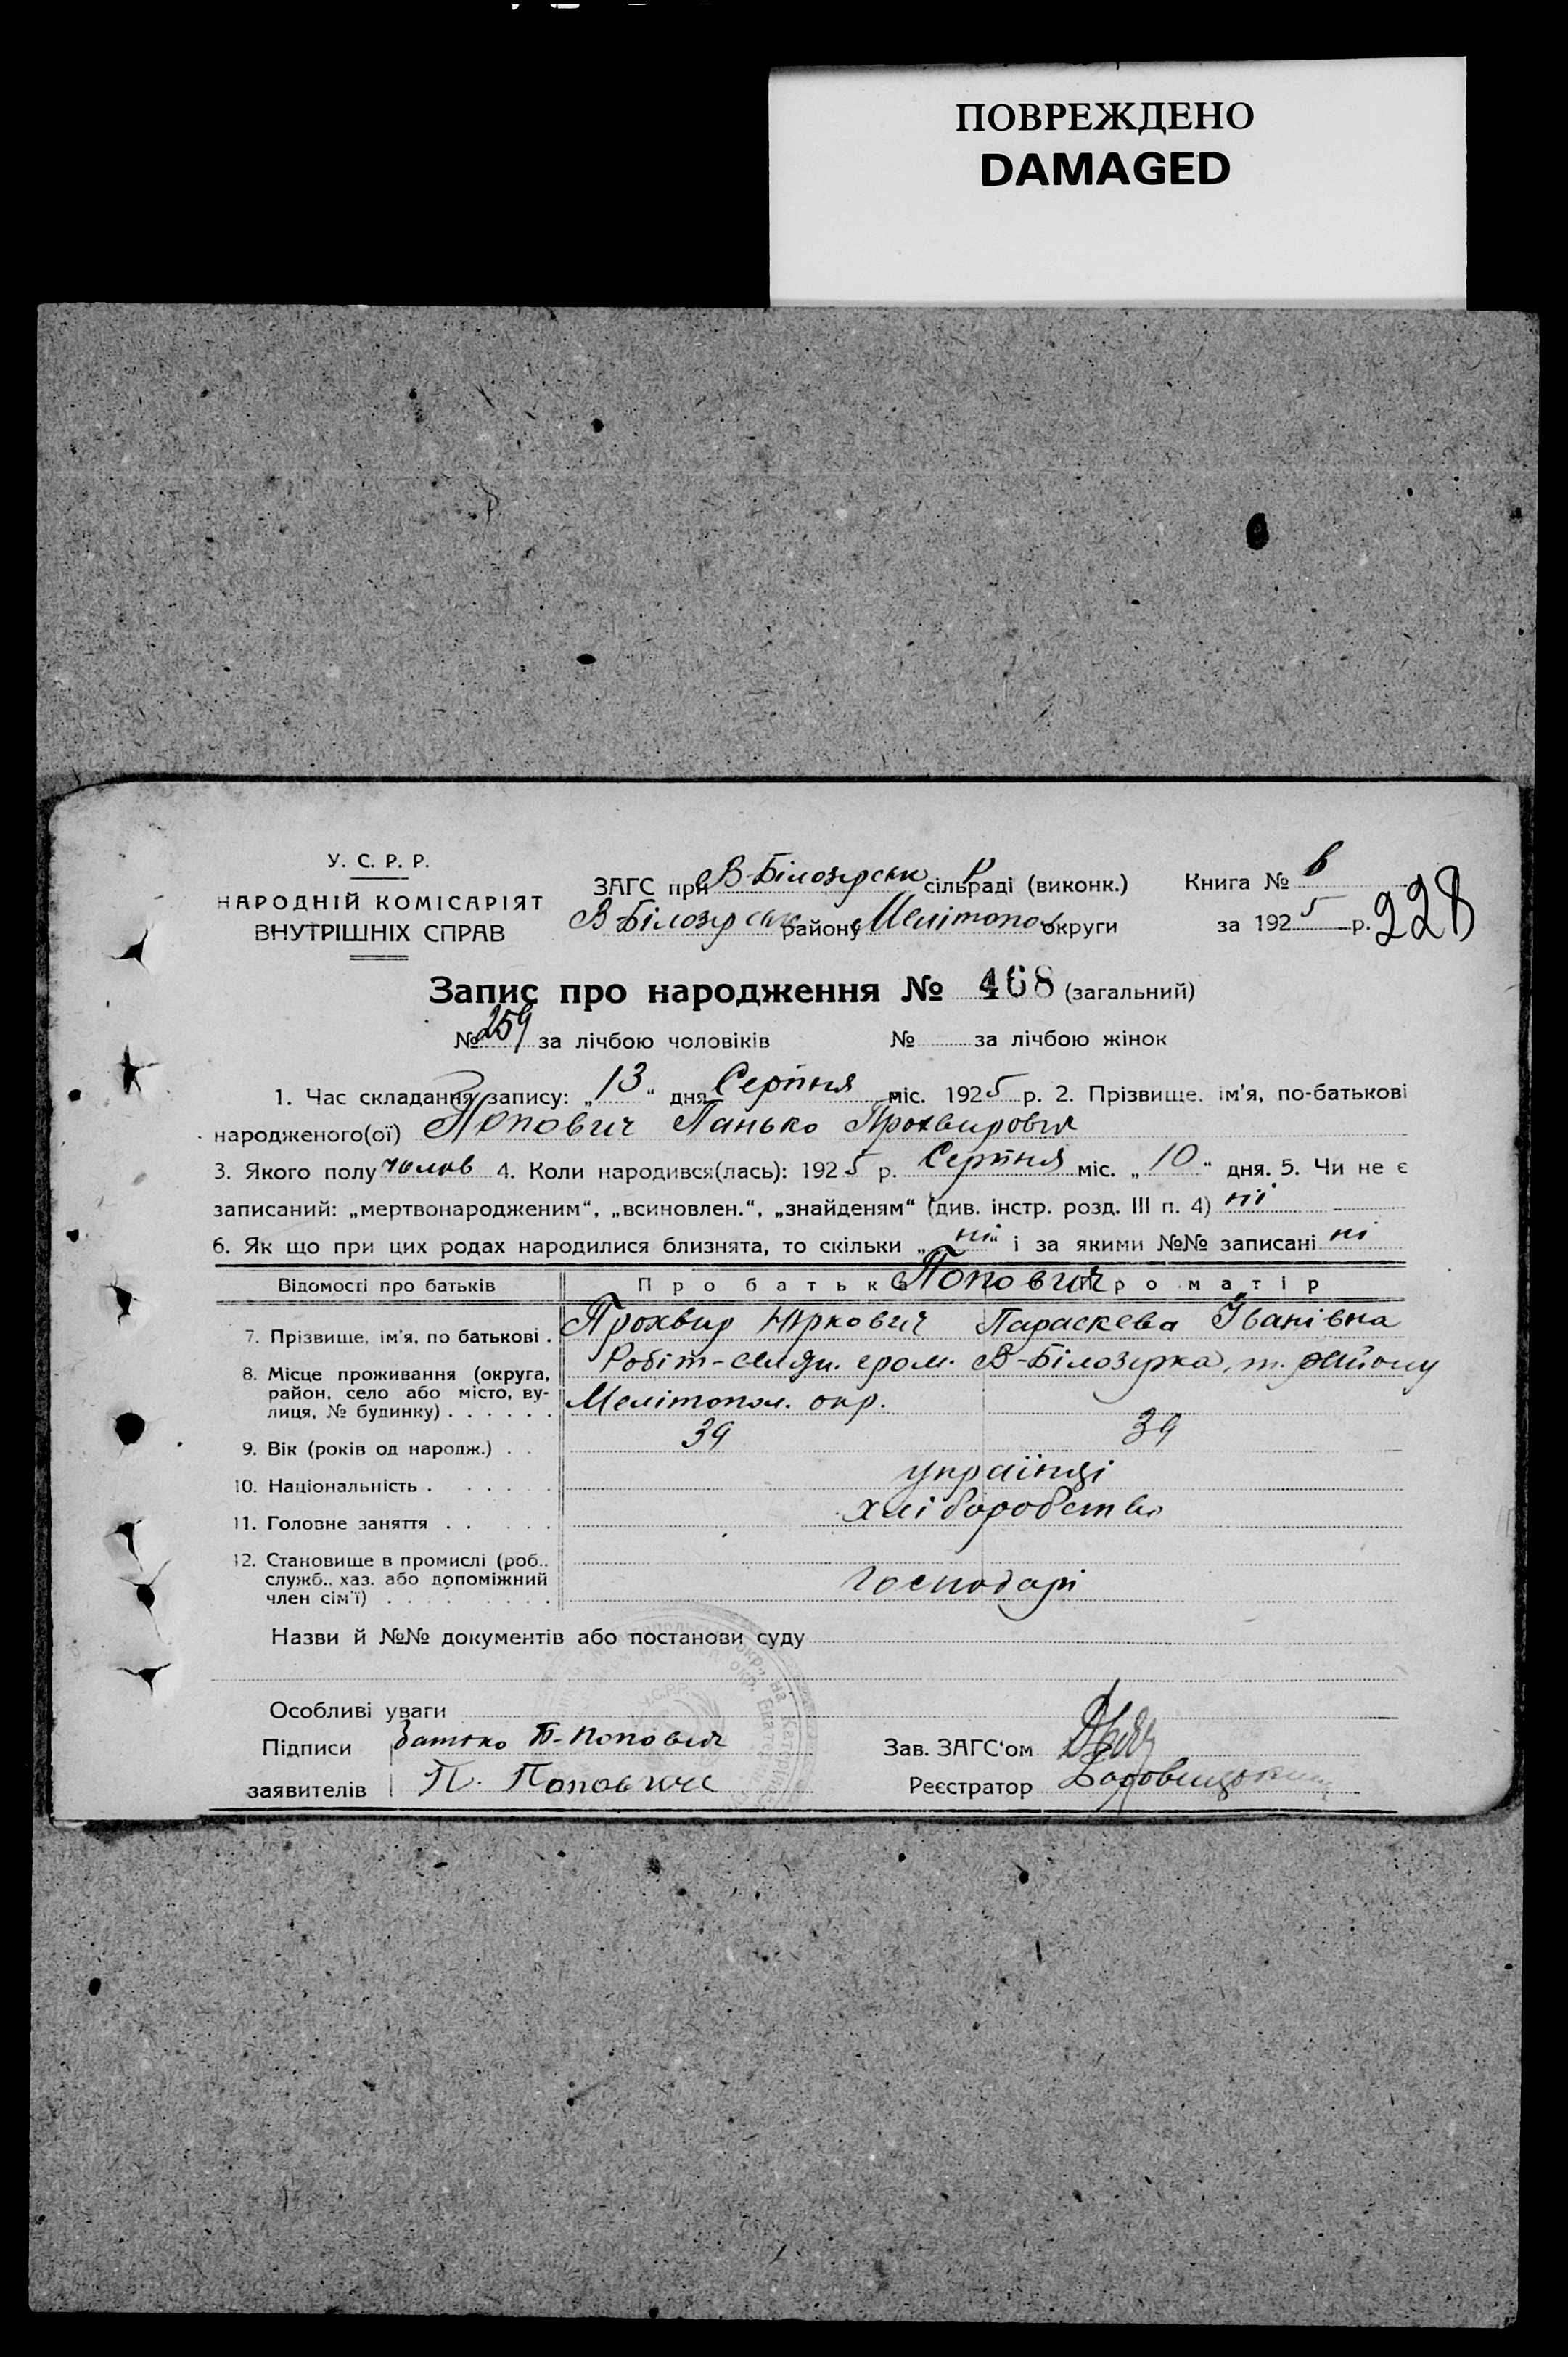 ПОВРЕЖДЕНО
DAMAGED
У. С. Р. Р.
НАРОДНІЙ КОМІСАРІЯТ
ВНУТРІШНІХ СПРАВ
ЗАГС при В-Білозерськ сільраді (виконк.)
В Білозерськ району Мелітопол округи
Книга №
за 1925 р.
228
Запис про народження № 468 (загальний)
№ 259 за лічбою чоловіків № за лічбою жінок
1. Час складання запису: „13“ дня Серпня міс. 1925 р. 2. Прізвище, ім'я, по-батькові
народженого(ої) Попович Панько Прохвирович
3. Якого полу чолов 4. Коли народився(лась): 1925 р. Серпня міс. „10“ дня. 5. Чи не є
записаний: „мертвонародженим“, „всиновлен.“, „знайденям“ (див. інстр. розд. III п. 4) ні
6. Як що при цих родах народилися близнята, то скільки „ні“ і за якими №№ записані ні
Відомості про батьків Про батька Попович Про матір
7. Прізвище, ім'я, по батькові . Прохвир Юркович Параскева Іванівна
8. Місце проживання (округа, Робіт-селян. гром. В-Білозерка, т. району
район, село або місто, ву-
лиця, № будинку) . . . . . . Мелітопол. окр.
9. Вік (років од народж.) . . 39 39
10. Національність . . . . . . українці
11. Головне заняття . . . . . хліборобство
12. Становище в промислі (роб.,
служб., хаз. або допоміжний господарі
член сім'ї) . . . . . . . . .
Назви й №№ документів або постанови суду
Особливі уваги
Підписи Батько П-Попович Зав. ЗАГС'ом
заявителів П. Попович Реєстратор